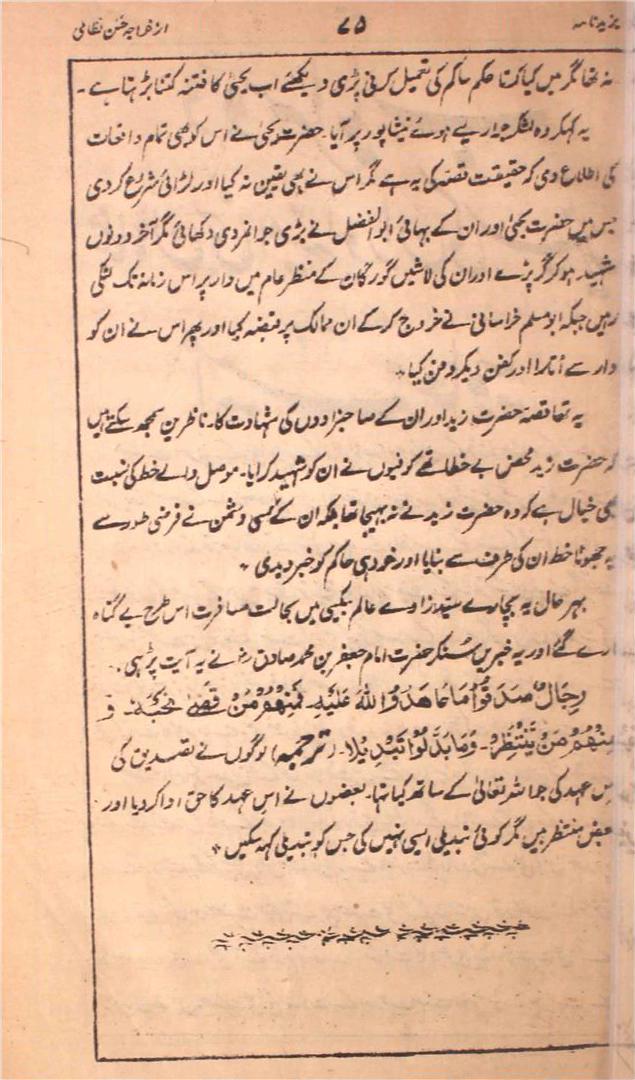 یزید نامہ ۷۵ از خواجہ حسن نظامی
نہ تھا مگر میں کیا کرتا حکم حاکم کی تعمیل کرنی پڑی دیکھئے اب یحییٰ کا فتنہ کتنا بڑہتا ہے۔
یہ کہکر وہ لشکر جرار لیے ہوئے نیشاپور پر آیا۔ حضرت یحییٰ نے اس کو بھی تمام واقعات
کی اطلاع دی کہ حقیقت قصہ کی یہ ہے مگر اس نے بھی یقین نہ کیا اور لڑائی شروع کر دی
جس میں حضرت یحییٰ اور ان کے بہائی ابو الفضل نے بڑی جوانمردی دکھائی مگر آخر دونوں
شہید ہو کر گر پڑے اور ان کی لاشیں گورگان کے منظر عام میں دار پر اس زمانہ تک لٹکی
رہیں جبکہ ابو مسلم خراسانی نے خروج کر کے ان ممالک پر قبضہ کیا اور پھر اس نے ان کو
دار سے اُتارا اور کفن دیکر دفن کیا۔
یہ تھا قصہ حضرت زید اور ان کے صاحبزادوں کی شہادت کا۔ ناظرین سمجھ سکتے ہیں
کہ حضرت زید محض بے خطا تھے کوفیوں نے ان کو شہید کرایا۔ موصل والے خط کی نسبت
بھی خیال ہے کہ وہ حضرت زید نے نہ بہیجا تھا بلکہ ان کے کسی دشمن نے فرضی طور سے
یہ جھوٹا خط ان کی طرف سے بنایا اور خود ہی حاکم کو خبر دیدی۔
بہر حال یہ بچارے سید زادے عالم بیکسی میں بحالت مسافرت اس طرح بے گناہ
مارے گئے اور یہ خبریں سُنکر حضرت امام جعفر بن محمد صادق رض نے یہ آیت پڑہی۔
رِجَالٌ صَدَقُوْا مَا عَاهَدُوا اللهَ عَلَيْهِ۔ فَمِنْهُمْ مَنْ قَضٰى نَحْبَهٗ۔ وَ
مِنْهُمْ مَنْ يَّنْتَظِرُ۔ وَمَا بَدَّلُوْا تَبْدِيْلًا۔ (ترجمہ) لوگوں نے تصدیق کی
اس عہد کی جو اللہ تعالیٰ کے ساتھ کیا تہا۔ بعضوں نے اس عہد کا حق ادا کر دیا اور
بعض منتظر ہیں مگر کوئی تبدیلی ایسی نہیں کی جس کو تبدیلی کہہ سکیں۔